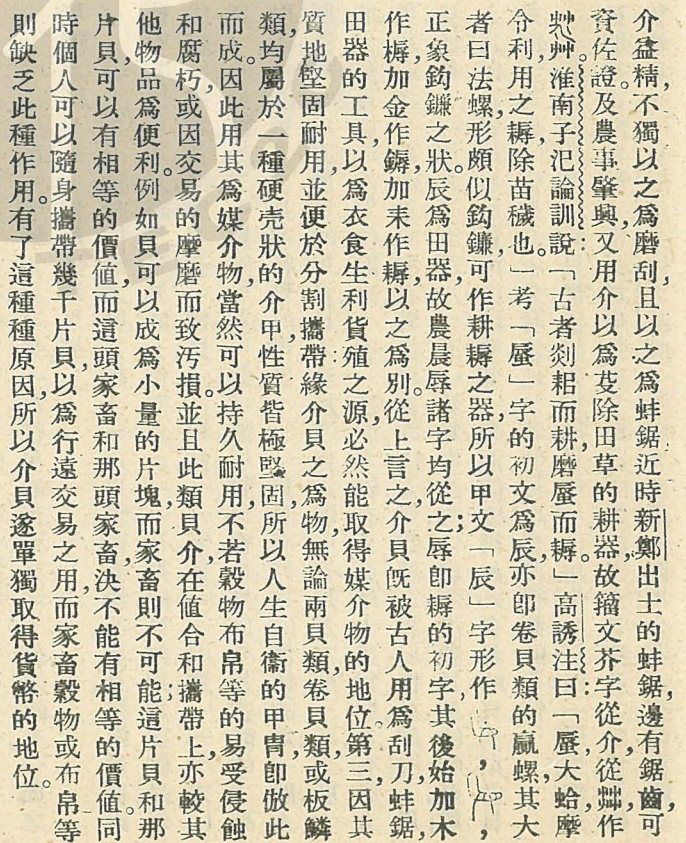 介益精，不獨以之爲磨刮，且以之爲蚌鋸，近時新鄭出土的蚌鋸，邊有鋸齒，可
資佐證。及農事肇興，又用介以爲芟除田草的耕器，故籀文芥字從介從茻，作
艸。淮南子氾論訓說：「古者剡耜而耕，磨蜃而耨。」高誘注曰：「蜃，大蛤，摩
令利，用之耨，除苗穢也。」考「蜃」字的初文爲辰，亦即卷貝類的蠃螺，其大
者曰法螺，形頗似鈎鐮，可作耕耨之器，所以甲文「辰」字形作，，
正象鈎鐮之狀。辰爲田器，故農晨辱諸字均從之；辱即耨的初字，其後始加木
作槈，加金作鎒，加耒作耨，以之爲別。從上言之，介貝旣被古人用爲刮刀，蚌鋸，
田器的工具，以爲衣食生利貨殖之源，必然能取得媒介物的地位。第三，因其
質地堅固耐用，並便於分割攜帶：緣介貝之爲物，無論兩貝類，卷貝類，或板鱗
類，均屬於一種硬壳狀的介甲，性質皆極堅固，所以人生自衞的甲胄即倣此
而成。因此用其爲媒介物，當然可以持久耐用，不若穀物布帛等的易受侵蝕
和腐朽，或因交易的摩磨而致汚損。並且此類貝介，在値合和攜帶上，亦較其
他物品爲便利。例如貝可以成爲小量的片塊，而家畜則不可能；這片貝和那
片貝，可以有相等的價値，而這頭家畜和那頭家畜，決不能有相等的價値。同
時個人可以隨身攜帶幾千片貝，以爲行遠交易之用，而家畜穀物或布帛等
則缺乏此種作用。有了這種種原因，所以介貝遂單獨取得貨幣的地位。